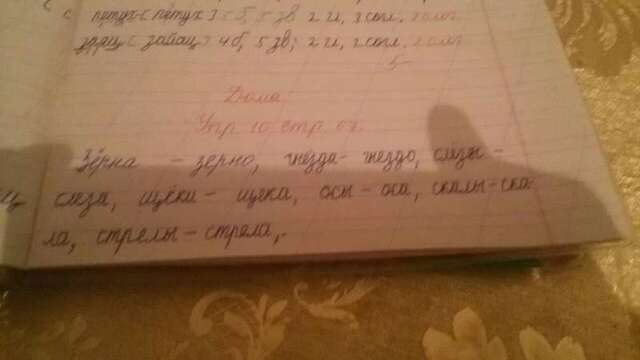 петух [ петух ] 5 б, 5 зв, 2 и, 3 согл, 2 слог
заяц [ зайац ] 4 б, 5 зв, 2 и, 3 согл, 2 слог
5-
Дома
Упр 10 стр. 67
Зёрна - зерно, гнёзда - гнездо, слёзы -
слеза, щёки - щека, осы - оса, скалы - ска-
ла, стрелы - стрела,.